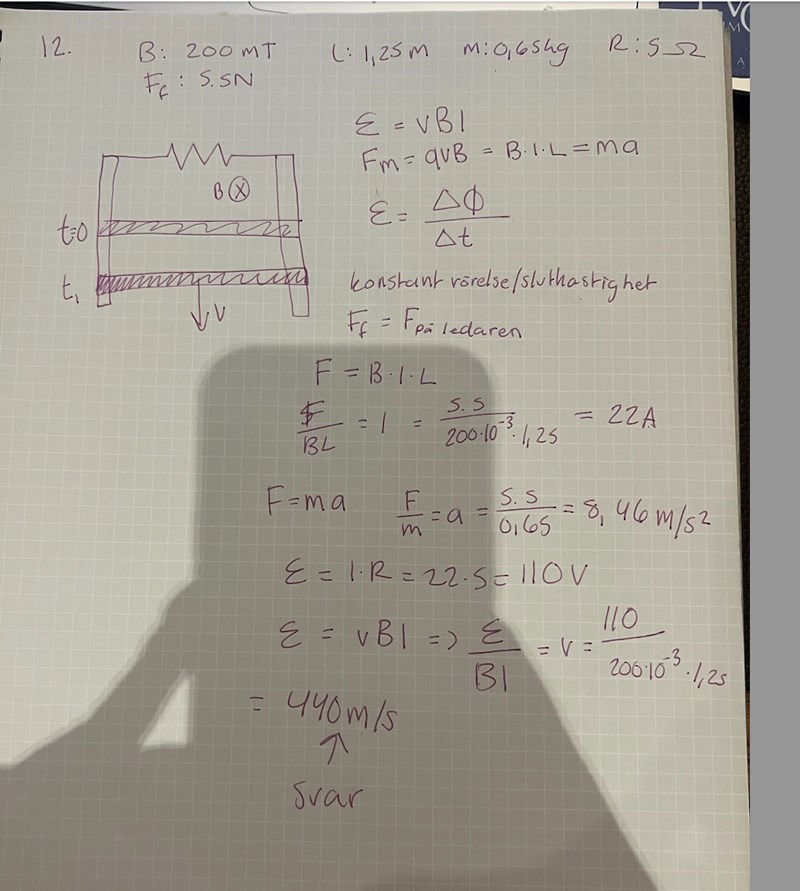 12. B: 200mT L: 1,25m m:0,65kg R:5Ω
Ff: 5.5N
ε = vBl
Fm = qvB = B·I·L = ma
B ⊗
ε = ΔΦ/Δt
t=0
t₁
v
konstant rörelse/sluthastighet
Ff = Fpå ledaren
F = B·I·L
F/BL = I = 5.5/200·10⁻³·1,25 = 22A
F=ma F/m = a = 5.5/0,65 = 8,46 m/s²
ε = I·R = 22·5 = 110V
ε = vBl => ε/Bl = v = 110/200·10⁻³·1,25
= 440m/s
↑
Svar